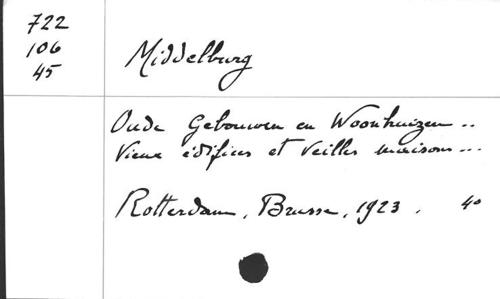 722
106
45
Middelburg
Oude Gebouwen en Woonhuizen ..
Vieux édifices et Veilles maisons ...
Rotterdam, Brusse, 1923. 4°